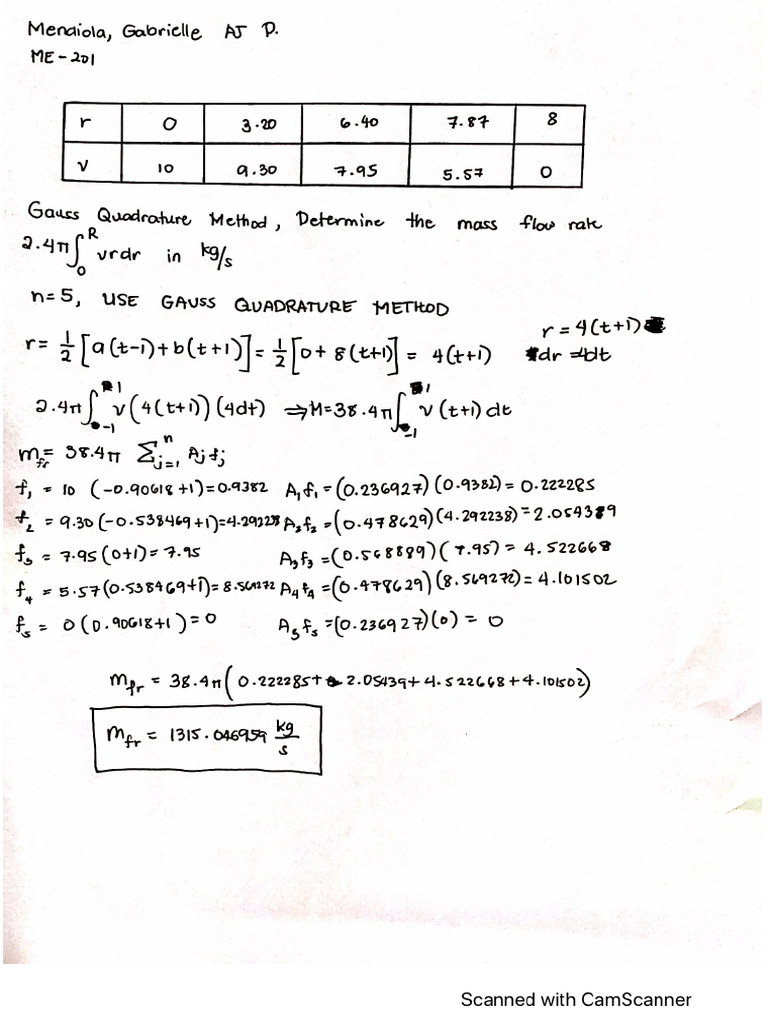 Mendiola, Gabrielle AJ D.
ME-201
r 0 3.20 6.40 7.87 8
v 10 9.30 7.95 5.57 0
Gauss Quadrature Method, Determine the mass flow rate
2.4π∫₀ᴿ vrdr in kg/s
n=5, USE GAUSS QUADRATURE METHOD
r = 1/2 [a(t-1)+b(t+1)] = 1/2 [0+8(t+1)] = 4(t+1) r = 4(t+1)
dr = 4dt
2.4π∫₋₁¹ v(4(t+1))(4dt) ⇒ M=38.4π∫₋₁¹ v(t+1)dt
mfr = 38.4π Σⁿj=1 Ajfj
f₁ = 10 (-0.90618+1)=0.9382 A₁f₁ = (0.236927)(0.9382) = 0.222285
f₂ = 9.30(-0.538469+1)=4.292238 A₂f₂ = (0.478629)(4.292238) = 2.054389
f₃ = 7.95(0+1) = 7.95 A₃f₃ = (0.568889)(7.95) = 4.522668
f₄ = 5.57(0.538469+1)=8.569272 A₄f₄ = (0.478629)(8.569272) = 4.101502
f₅ = 0(0.90618+1) = 0 A₅f₅ = (0.236927)(0) = 0
mfr = 38.4π(0.222285+2.05439+4.522668+4.101502)
mfr = 1315.046959 kg/s
Scanned with CamScanner